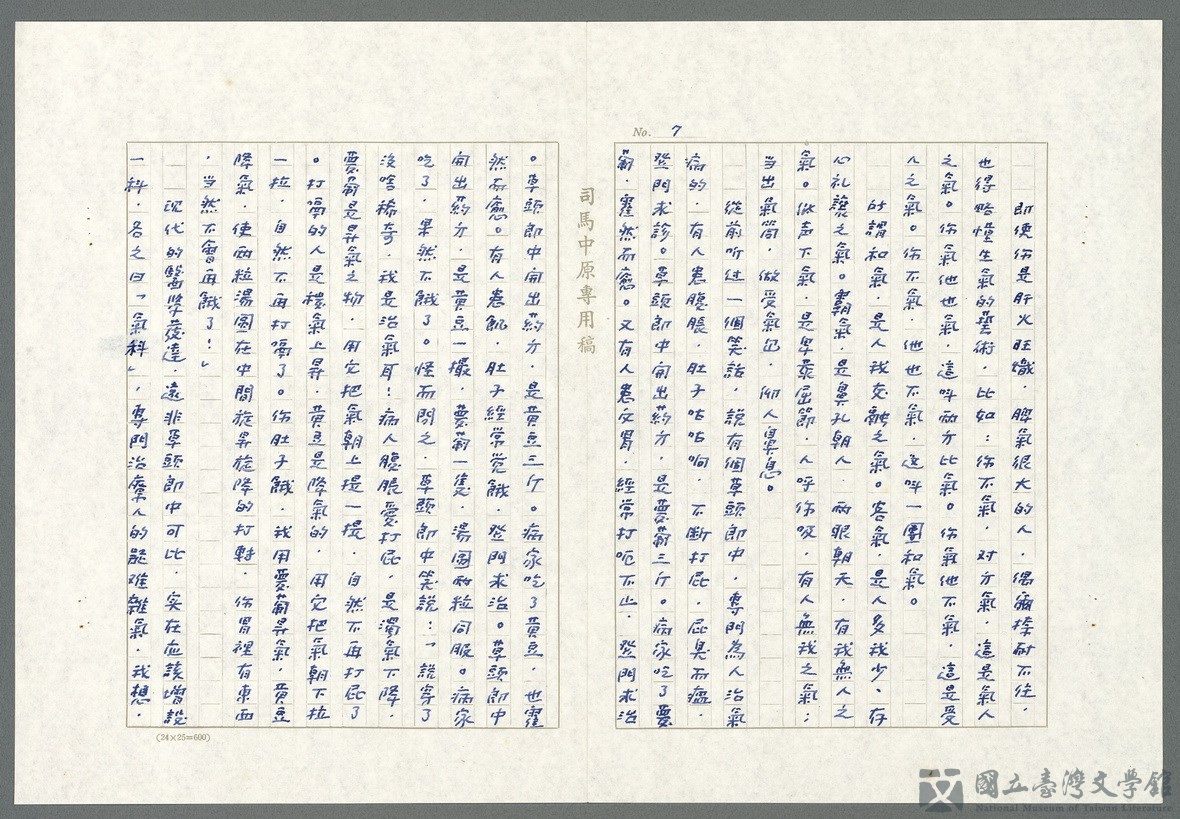 No. 7
即使你是肝火旺熾．脾氣很大的人．偶爾按耐不住．
也得略懂生氣的藝術．比如：你不氣．對方氣．這是氣人
之氣。你氣他也氣．這叫兩方比氣。你氣他不氣．這是受
人之氣。你不氣．他也不氣．這叫一團和氣。
所謂和氣．是人我交融之氣。客氣．是人多我少、存
心礼讓之氣。霸氣．是鼻孔朝人．兩眼朝天．有我無人之
氣。低声下氣．是卑躬屈節．人呼你吸．有人無我之氣；
当出氣筒．做受氣包．仰人鼻息。
從前听过一個笑話．說有個草頭郎中．專門為人治氣
病的．有人患腹脹．肚子咕咕响．不断打屁．屁臭而瘟．
登門求診。草頭郎中開出葯方．是蔓蔔三斤。病家吃了蔓
蔔．霍然而癒。又有人患 胃．經常打呃不止．登門求治
。草頭郎中開出葯方．是黄豆三斤。病家吃了黄豆．也霍
然而癒。有人患飢．肚子經常觉餓．登門求治。草頭郎中
開出葯方．是黄豆一撮．蔓蔔一隻．湯圆兩粒同服。病家
吃了．果然不餓了。怪而問之．草頭郎中笑說：「說穿了
沒啥稀奇．我是治氣耳！病人腹脹愛打屁．是濁氣下降．
蔓蔔是昇氣之物．用它把氣朝上提一提．自然不再打屁了
。打嗝的人是穢氣上昇．黄豆是降氣的．用它把氣朝下拉
一拉．自然不再打嗝了。你肚子餓．我用蔓蔔昇氣．黄豆
降氣．使兩粒湯圓在中間旋昇旋降的打轉．你胃裡有東西
．当然不會再餓了！」
现代的醫學發達．遠非草頭郎中可比．实在应該增設
一科．名之曰「氣科」．專門治療人的疑难雜氣．我想．
司馬中原專用稿
(24×25=600)
國立臺灣文學館
National Museum of Taiwan Literature